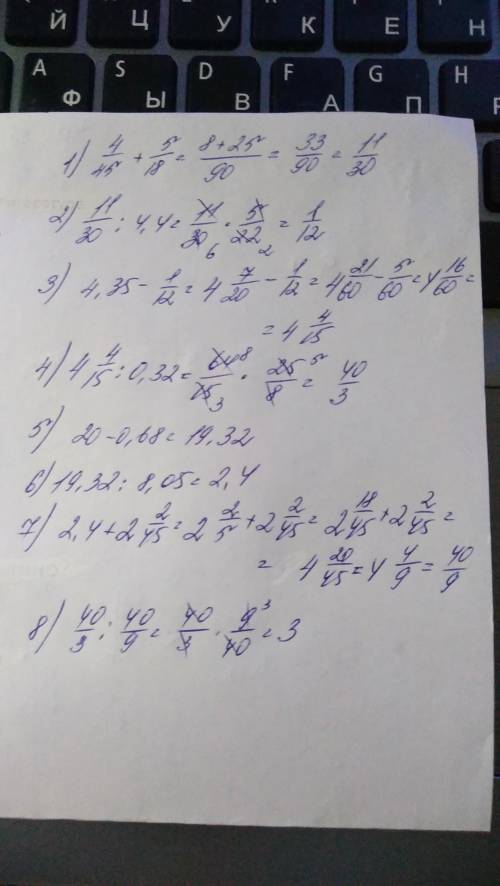 Й Ц У К Е Н
A S D F G H
Ф Ы В А П
1) 4/45 + 5/18 = (8+25)/90 = 33/90 = 11/30
2) 11/30 : 4,4 = 11/30 6 · 5/22 2 = 1/12
3) 4,35 - 1/12 = 4 7/20 - 1/12 = 4 21/60 - 5/60 = 4 16/60 =
= 4 4/15
4) 4 4/15 : 0,32 = 64 8/15 3 · 25 5/8 = 40/3
5) 20 - 0,68 = 19,32
6) 19,32 : 8,05 = 2,4
7) 2,4 + 2 2/45 = 2 2/5 + 2 2/45 = 2 18/45 + 2 2/45 =
= 4 20/45 = 4 4/9 = 40/9
8) 40/3 : 40/9 = 40/3 · 9 3/40 = 3